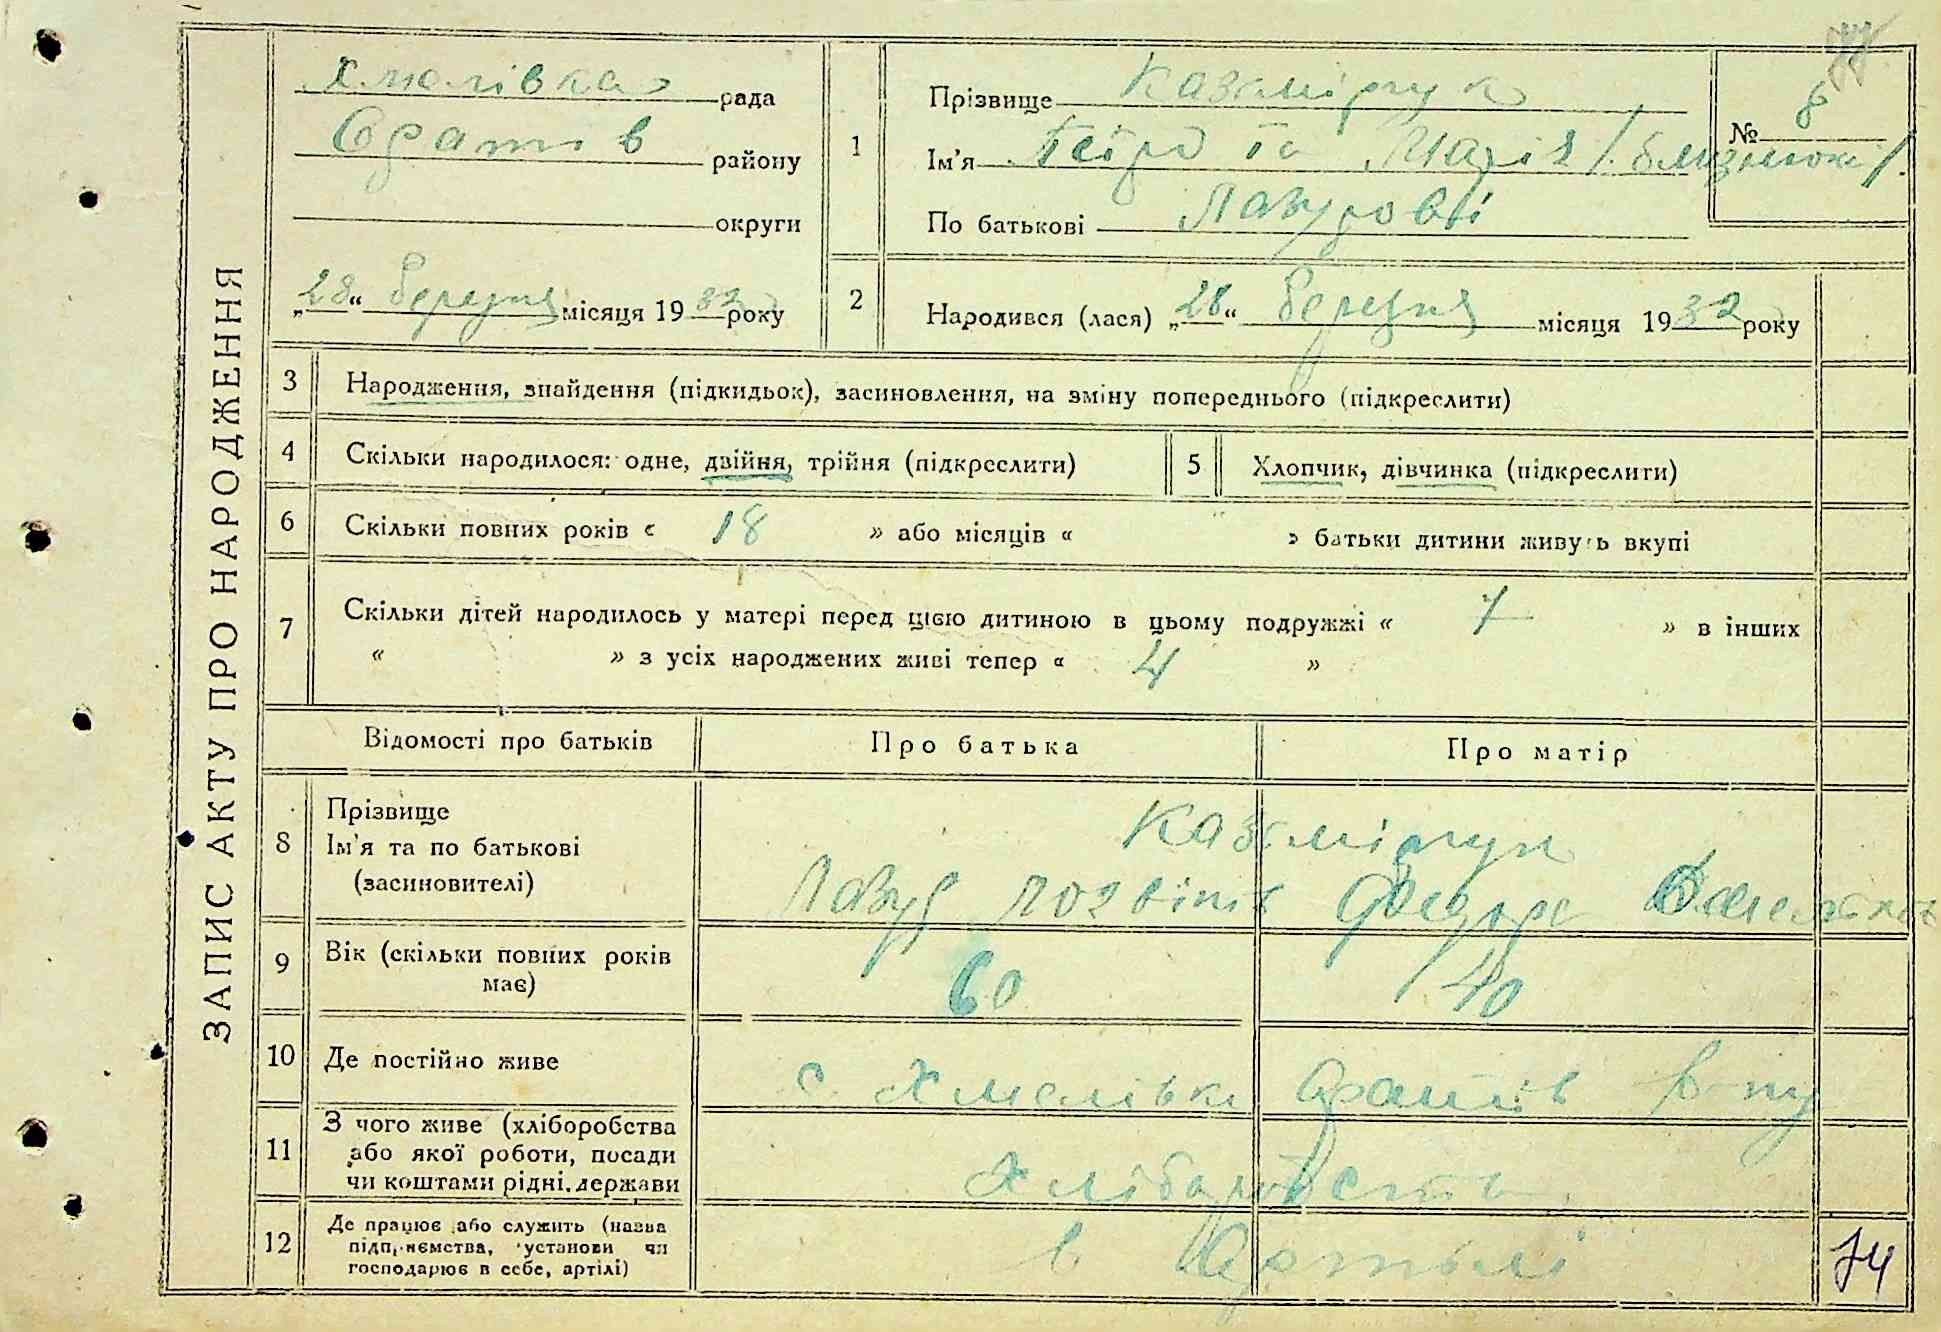 ЗАПИС АКТУ ПРО НАРОДЖЕННЯ
Хмелівка рада
Оратів району
округи
„28“ березня місяця 1932 року
1
Прізвище Казміручк
№ 8
Ім'я Петро та Марія /близнюки/.
По батькові Лазурові
2
Народився (лася) „26“ березня місяця 1932 року
3 Народження, знайдення (підкидьок), засиновлення, на зміну попереднього (підкреслити)
4 Скільки народилося: одне, двійня, трійня (підкреслити)
5 Хлопчик, дівчинка (підкреслити)
6 Скільки повних років « 18 » або місяців « » батьки дитини живуть вкупі
7 Скільки дітей народилось у матері перед цією дитиною в цьому подружжі « 7 » в інших
« » з усіх народжених живі тепер « 4 »
Відомості про батьків
Про батька
Про матір
8 Прізвище
Ім'я та по батькові
(засиновителі)
Лазур
9 Вік (скільки повних років
має)
60
40
10 Де постійно живе
с. Хмелівка Оратів р-ну
11 З чого живе (хліборобства
або якої роботи, посади
чи коштами рідні, держави
Хліборобств
12 Де працює або служить (назва
підприємства, установи чи
господарює в себе, артілі)
в Артілі
74